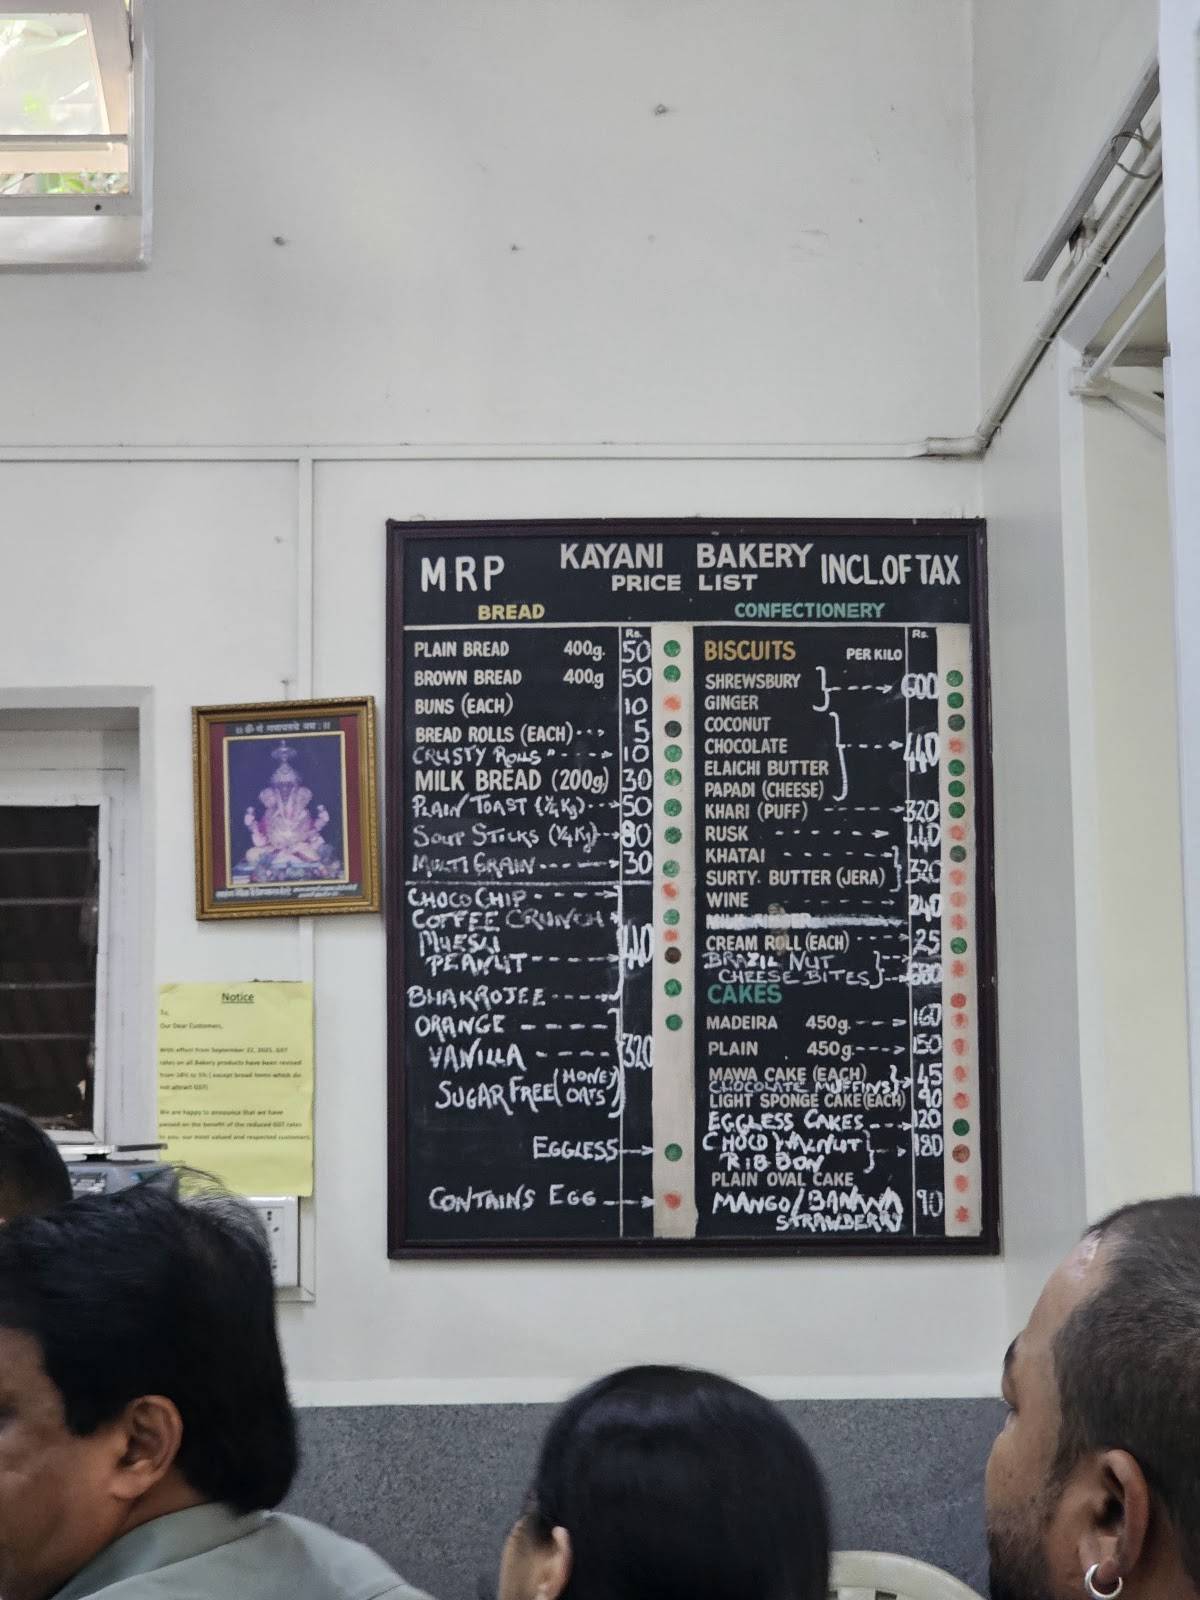 MRP KAYANI BAKERY INCL.OF TAX
PRICE LIST
BREAD
Rs.
PLAIN BREAD 400g. 50
BROWN BREAD 400g 50
BUNS (EACH) 10
BREAD ROLLS (EACH) 5
CRUSTY ROLLS " 10
MILK BREAD (200g) 30
PLAIN TOAST (¼Kg) 50
SOUP STICKS (¼Kg) 80
MULTI GRAIN 30
CHOCO CHIP
COFFEE CRUNCH
MUESLI
PEANUT 440
BHAKROJEE
ORANGE
VANILLA 320
SUGAR FREE (HONEY OATS)
EGGLESS
CONTAINS EGG
CONFECTIONERY
BISCUITS PER KILO Rs.
SHREWSBURY 600
GINGER
COCONUT
CHOCOLATE 440
ELAICHI BUTTER
PAPADI (CHEESE)
KHARI (PUFF) 320
RUSK 440
KHATAI
SURTY. BUTTER (JERA) 320
WINE 240
CREAM ROLL (EACH) 25
BRAZIL NUT
CHEESE BITES
CAKES
MADEIRA 450g. 160
PLAIN 450g. 150
MAWA CAKE (EACH) 45
CHOCOLATE MUFFINS
LIGHT SPONGE CAKE (EACH) 90
EGGLESS CAKES 120
CHOCO WALNUT 180
RIBBON
PLAIN OVAL CAKE
MANGO/BANANA 90
STRAWBERRY
Notice
To,
Our Dear Customers,
With effect from September 22, 2025, GST
rates on all Bakery products have been revised
from 18% to 5% ( except bread items which do
not attract GST)
We are happy to announce that we have
passed on the benefit of the reduced GST rates
to you, our most valued and respected customers.